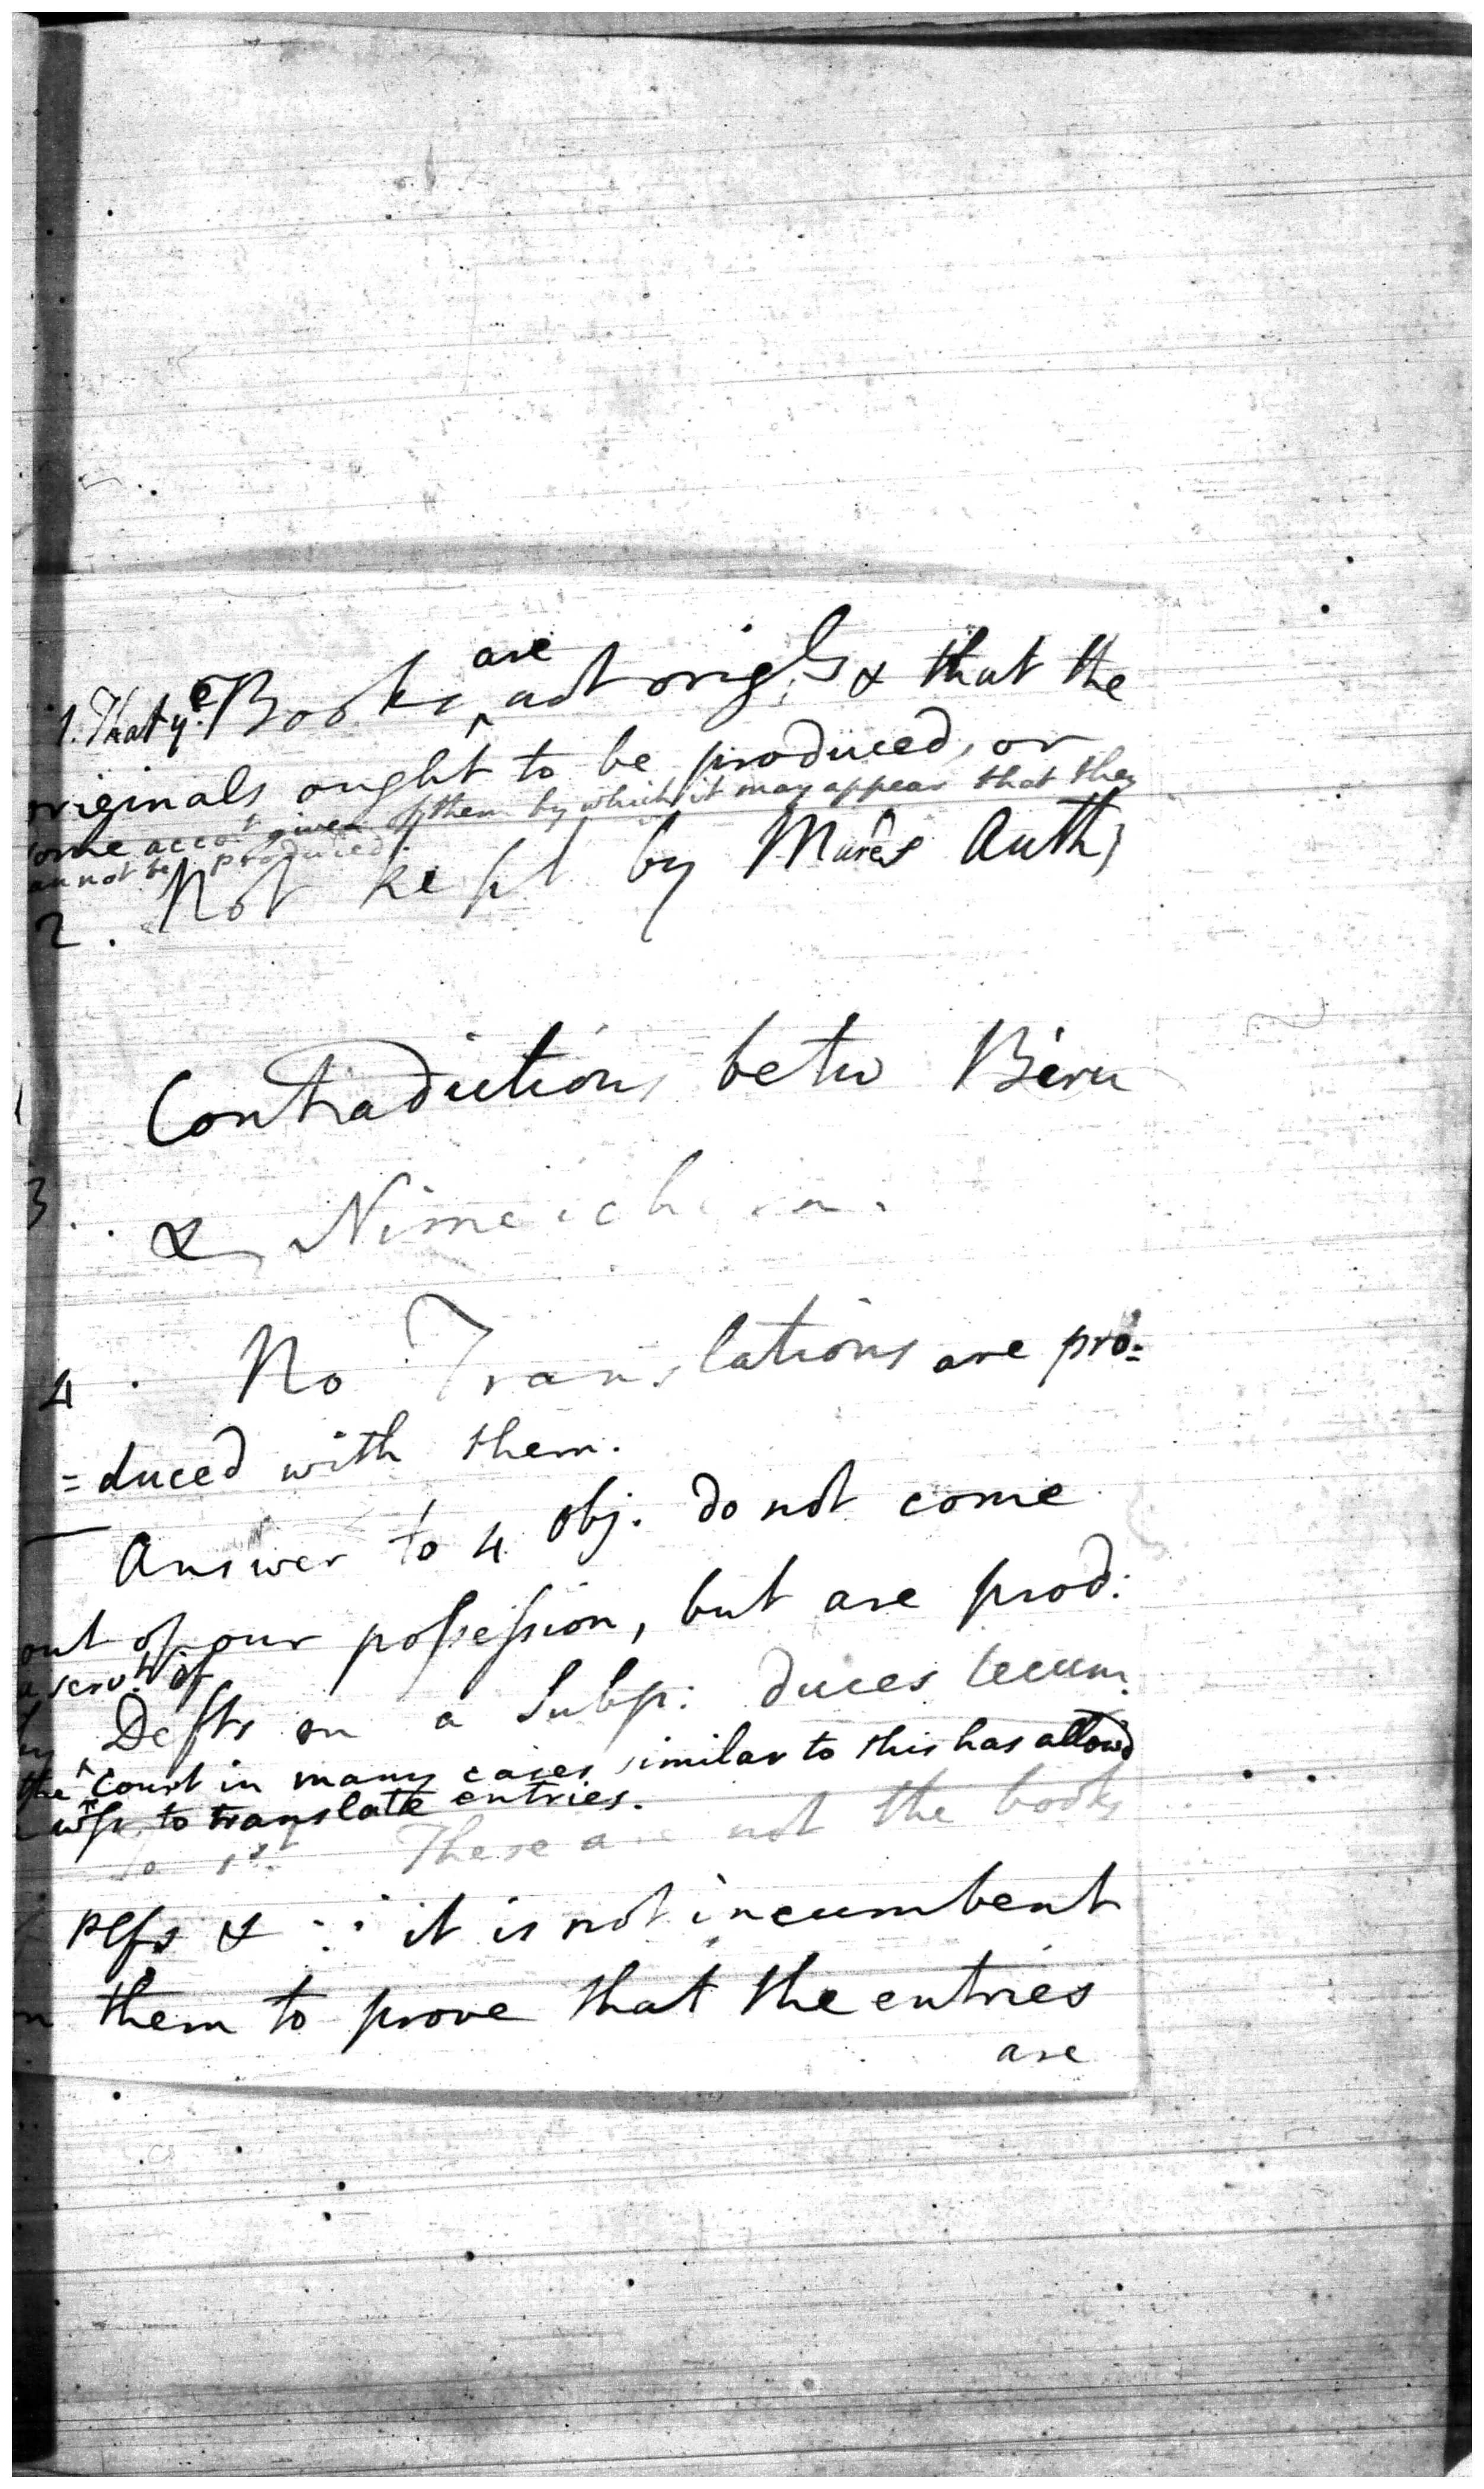 1. That yͤ Books are not origls & that the
originals ought to be produced, or
some accot given of them by which it may appear that they
cannot be produced.
2. Not kept by Auth;
Contradictions betw Biru
3. &
4. No Translations are pro=
=duced with them.
Answer to 4 obj. do not come
out of our possession, but are prod:
by a servt of
Defts on a Subp: duces tecum.
the court in many cases similar to this has allowd
to translate entries.
To 1st These are not the books
Plfs & ∴ it is not incumbent
on them to prove that the entries
are